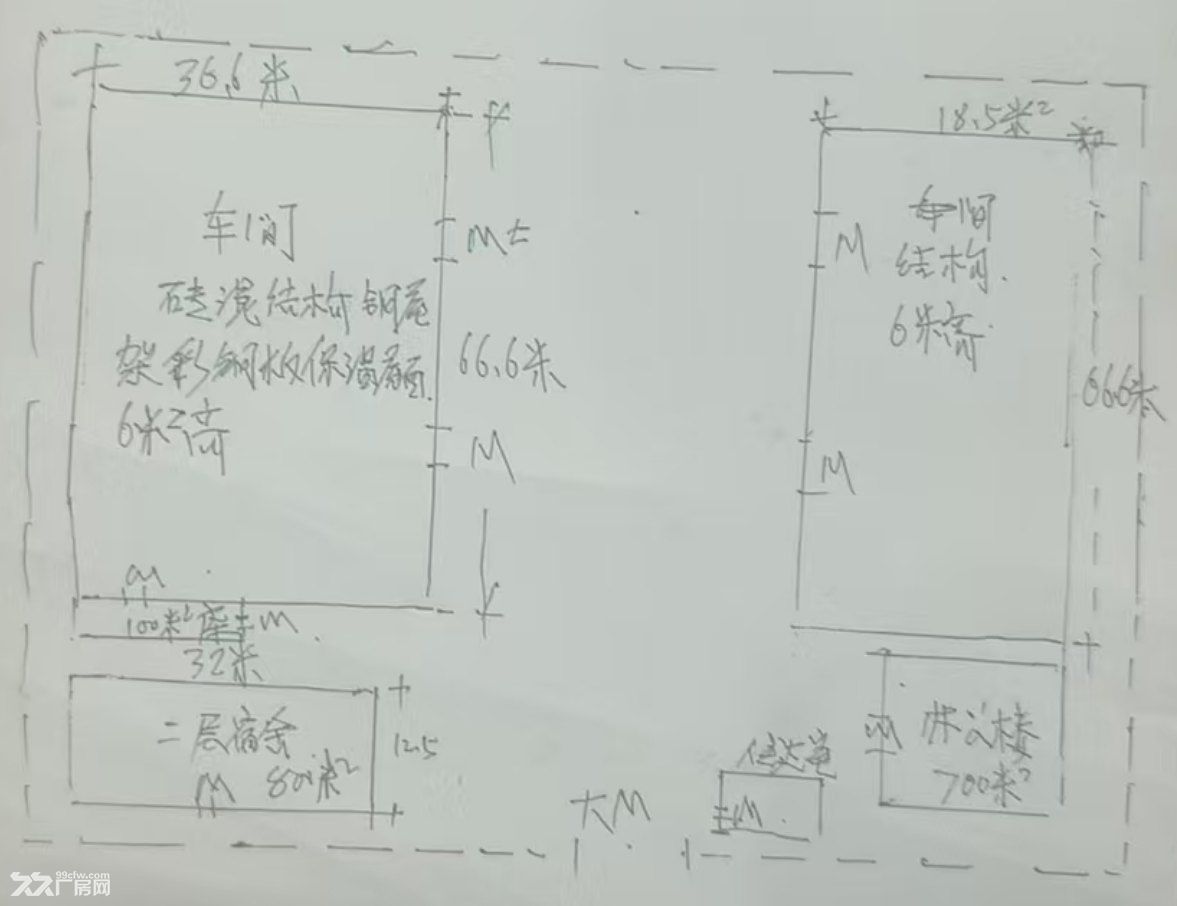 36.6米
18.5米²
车间
砖混结构钢屋
架彩钢板保温屋面
6米高
66.6米
M
M
M
车间
结构.
6米高
M
M
66.6米
100米²库
M
32米
二层宿舍
800米²
M
12.5
大M
传达室
M
办公楼
700米²
M
99cfw.com
厂房网